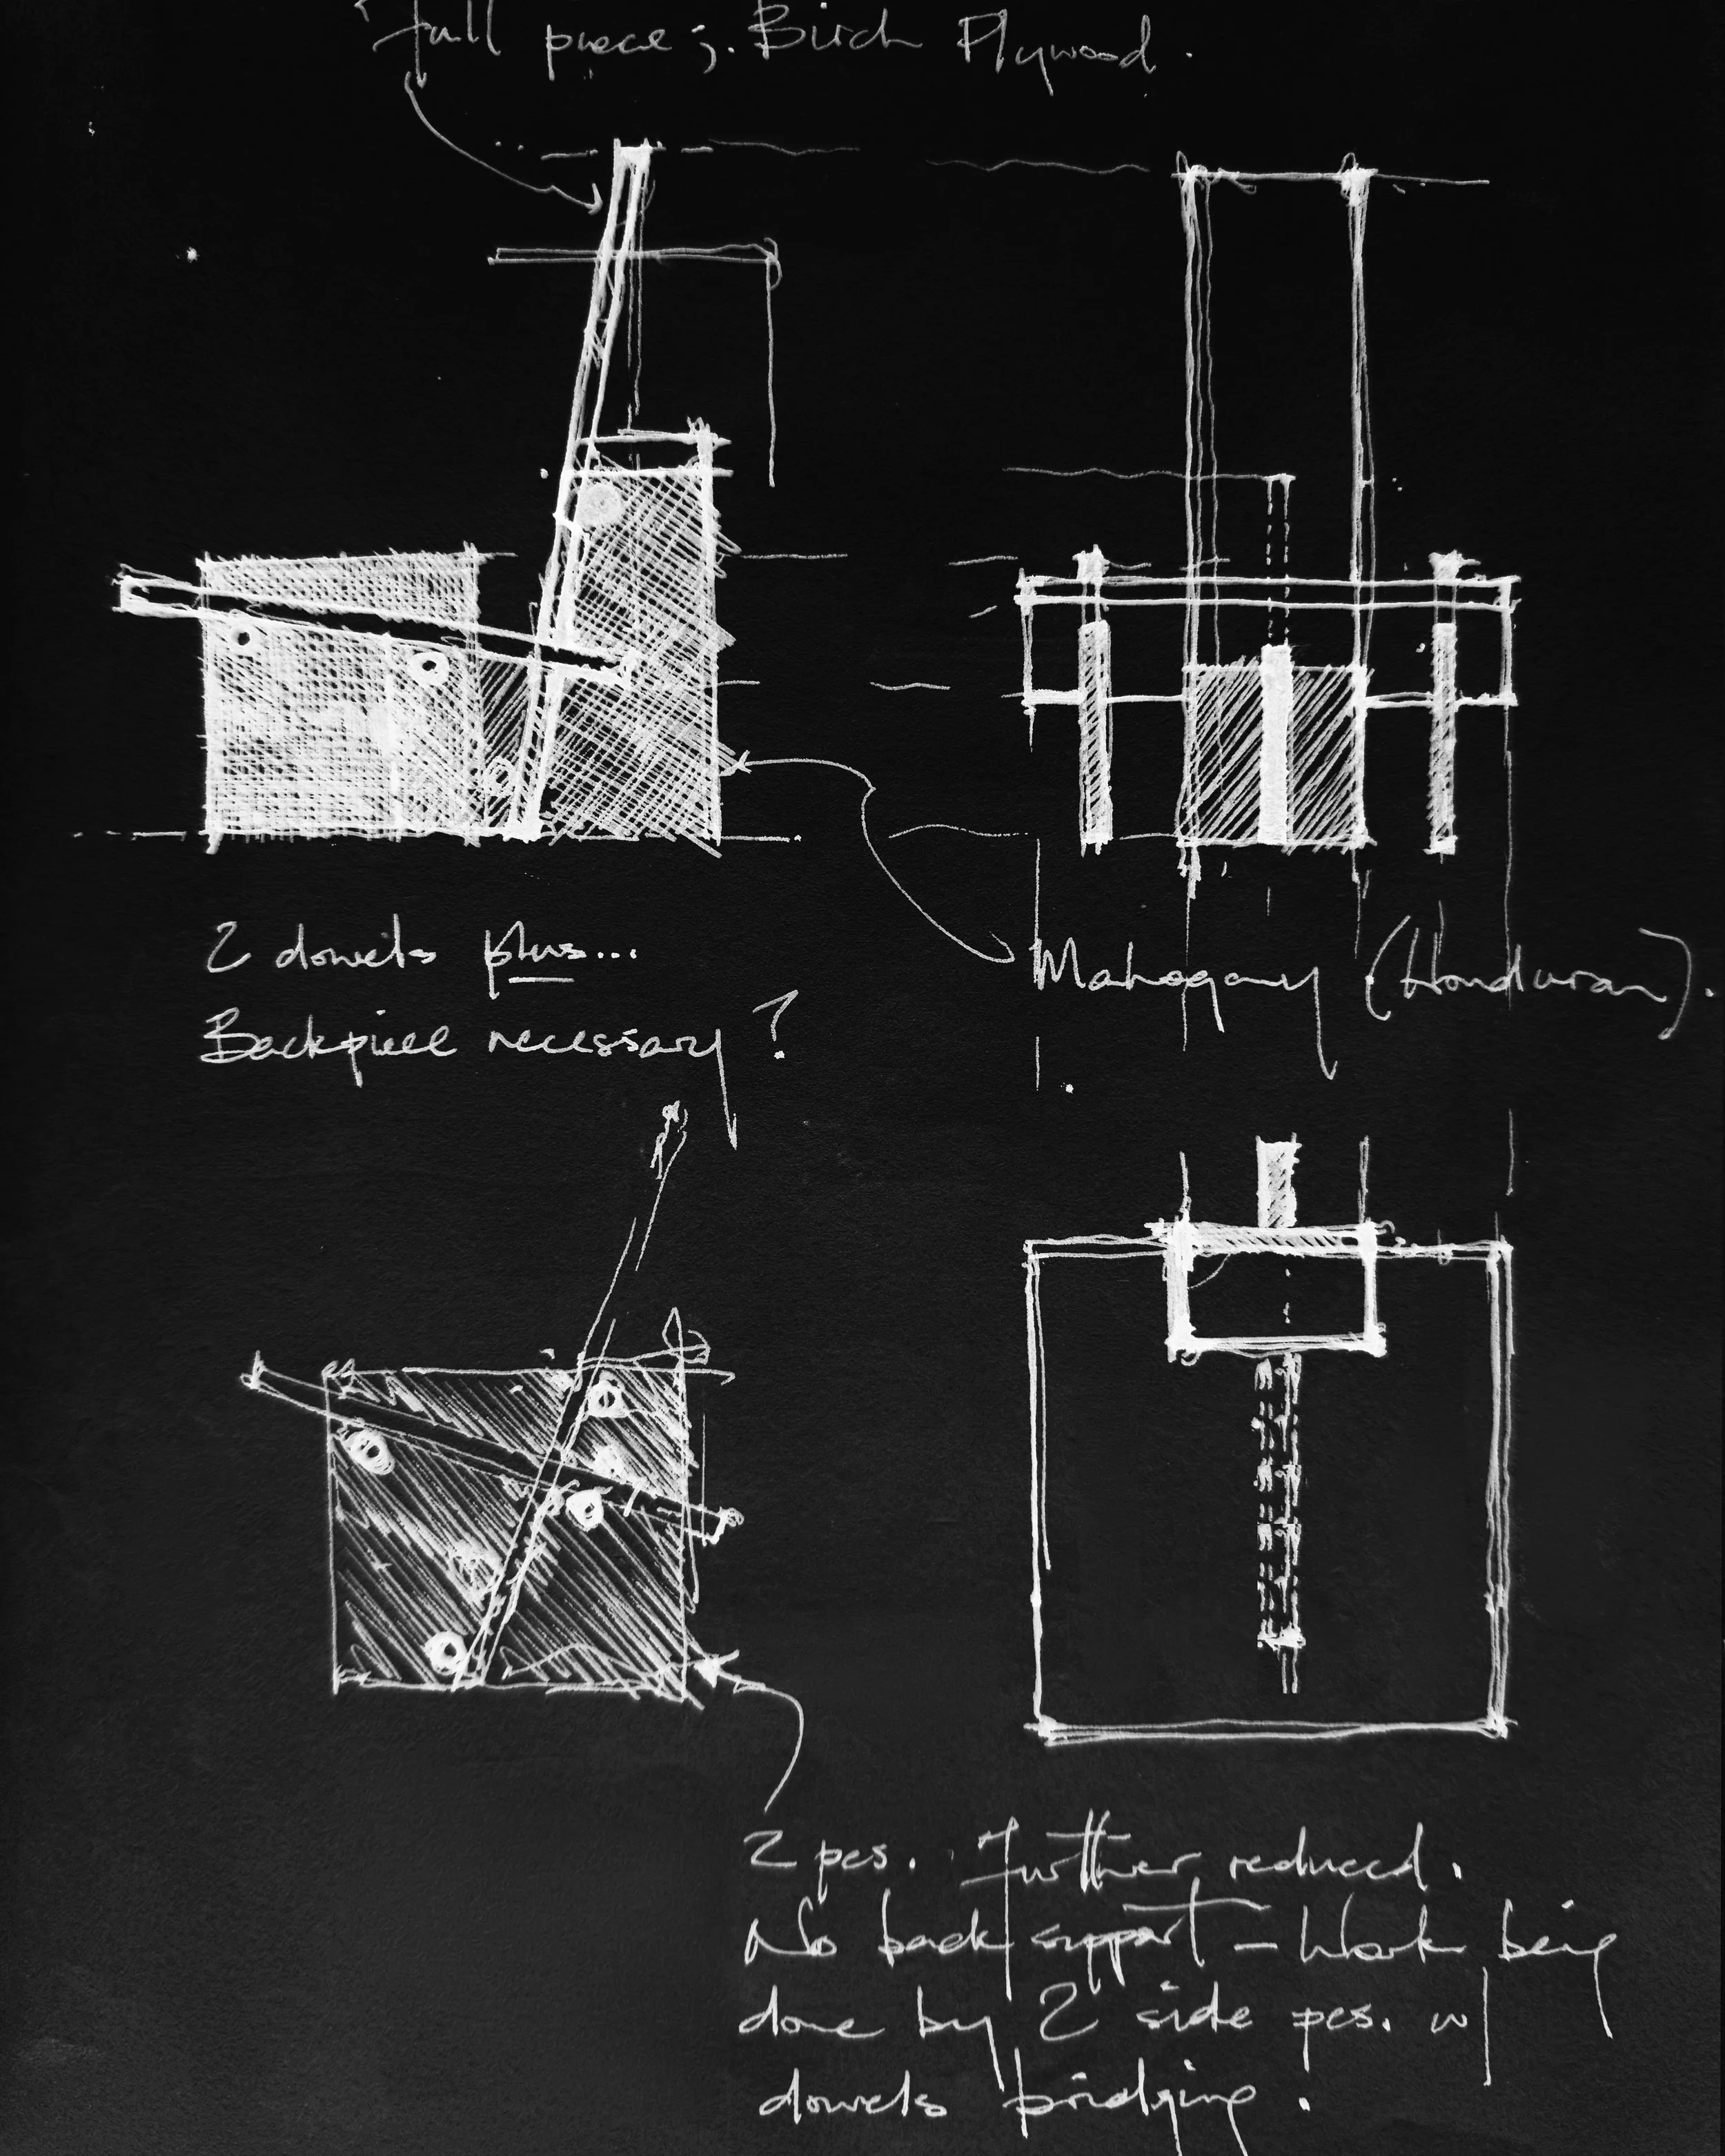 Tall piece ; . Birch Plywood .
2 dowels plus...
Backpiece necessary ?
Mahogany (Honduran).
2 pcs. Further reduced.
No back support – Work being
done by 2 side pcs. w/
dowels bridging.